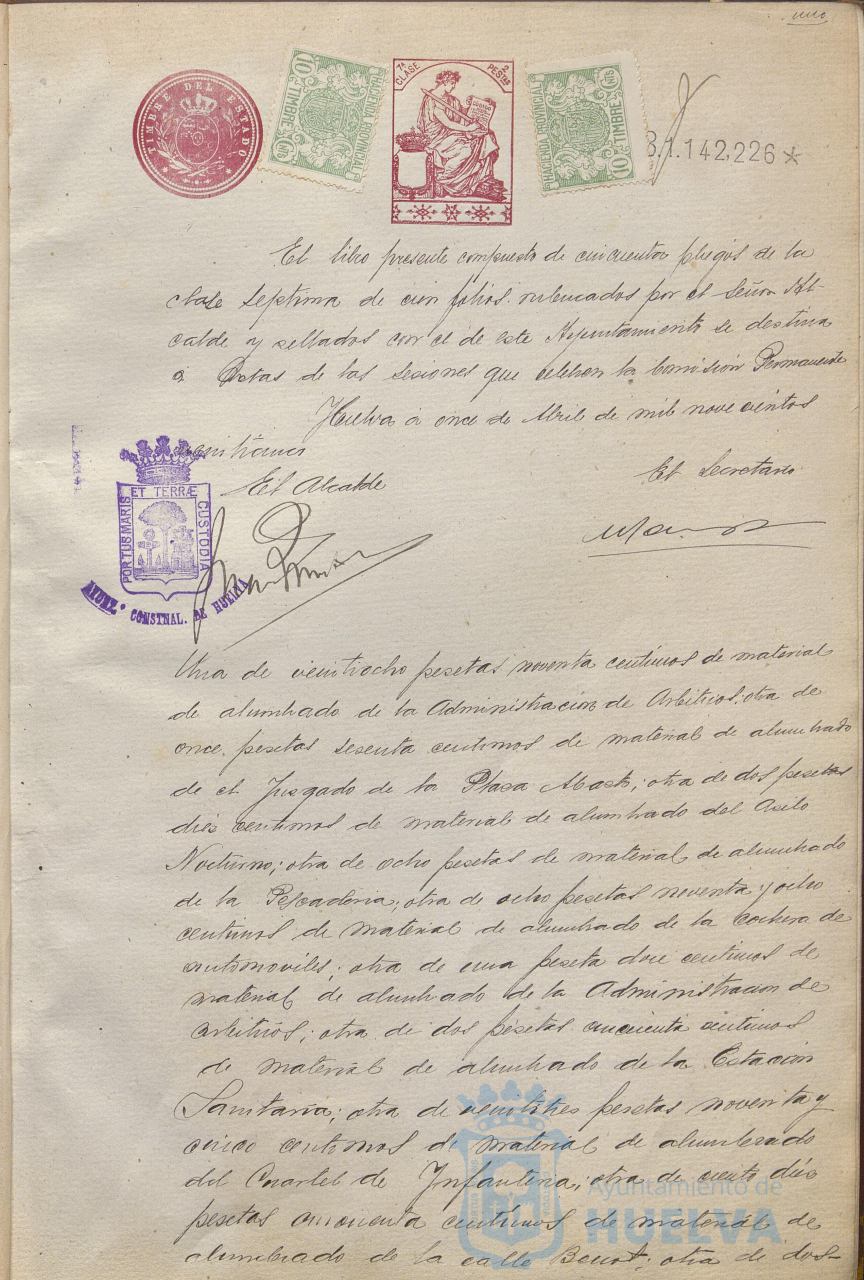 uno
TIMBRE DEL ESTADO
10 CTS TIMBRE
HACIENDA PROVINCIAL
7ª CLASE
2 PESTAS
HACIENDA PROVINCIAL
10 CTS TIMBRE
B.1.142,226*
El libro presente compuesto de cincuenta pliegos de la
clase septima de cien folios rubricados por el Señor Al-
calde y sellados con el de este Ayuntamiento se destina
a Actas de las sesiones que celebren la Comisión Permanente
Huelva a once de Abril de mil novecientos
El Alcalde
El Secretario
PORTUS MARIS ET TERRÆ CUSTODIA
AYUNT.º CONSTNAL. DE HUELVA
Una de veintiocho pesetas noventa centimos de material
de alumbrado de la Administracion de Arbitrios; otra de
once pesetas sesenta centimos de material de alumbrado
de el Juzgado de la Plaza Abasto; otra de dos pesetas
diez centimos de material de alumbrado del Asilo
Nocturno; otra de ocho pesetas de material de alumbrado
de la Pescaderia; otra de ocho pesetas noventa y ocho
centimos de material de alumbrado de la cochera de
automoviles; otra de una peseta doce centimos de
material de alumbrado de la Administracion de
arbitrios; otra de dos pesetas cincuenta centimos
de material de alumbrado de la Estación
Sanitaria; otra de veintitres pesetas noventa y
cinco centimos de material de alumbrado
del Cuartel de Infanteria; otra de ciento diez
pesetas cincuenta centimos de material de
alumbrado de la calle Benot; otra de dos-
Ayuntamiento de
HUELVA